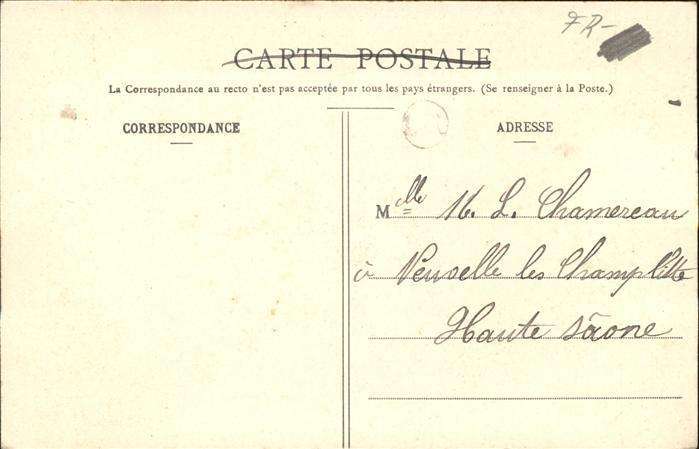 FR-
CARTE POSTALE
La Correspondance au recto n'est pas acceptée par tous les pays étrangers. (Se renseigner à la Poste.)
CORRESPONDANCE
ADRESSE
Mlle M. L. Chamereau
à Neuvelle les Champlitte
Haute Sâone